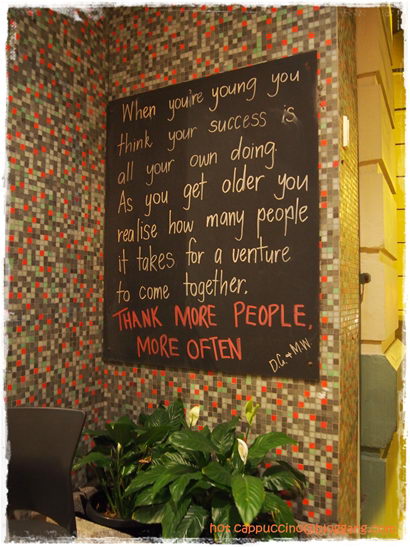 When you're young you
think your success is
all your own doing.
As you get older you
realise how many people
it takes for a venture
to come together.
THANK MORE PEOPLE,
MORE OFTEN
D.G. & M.W
hot cappuccino